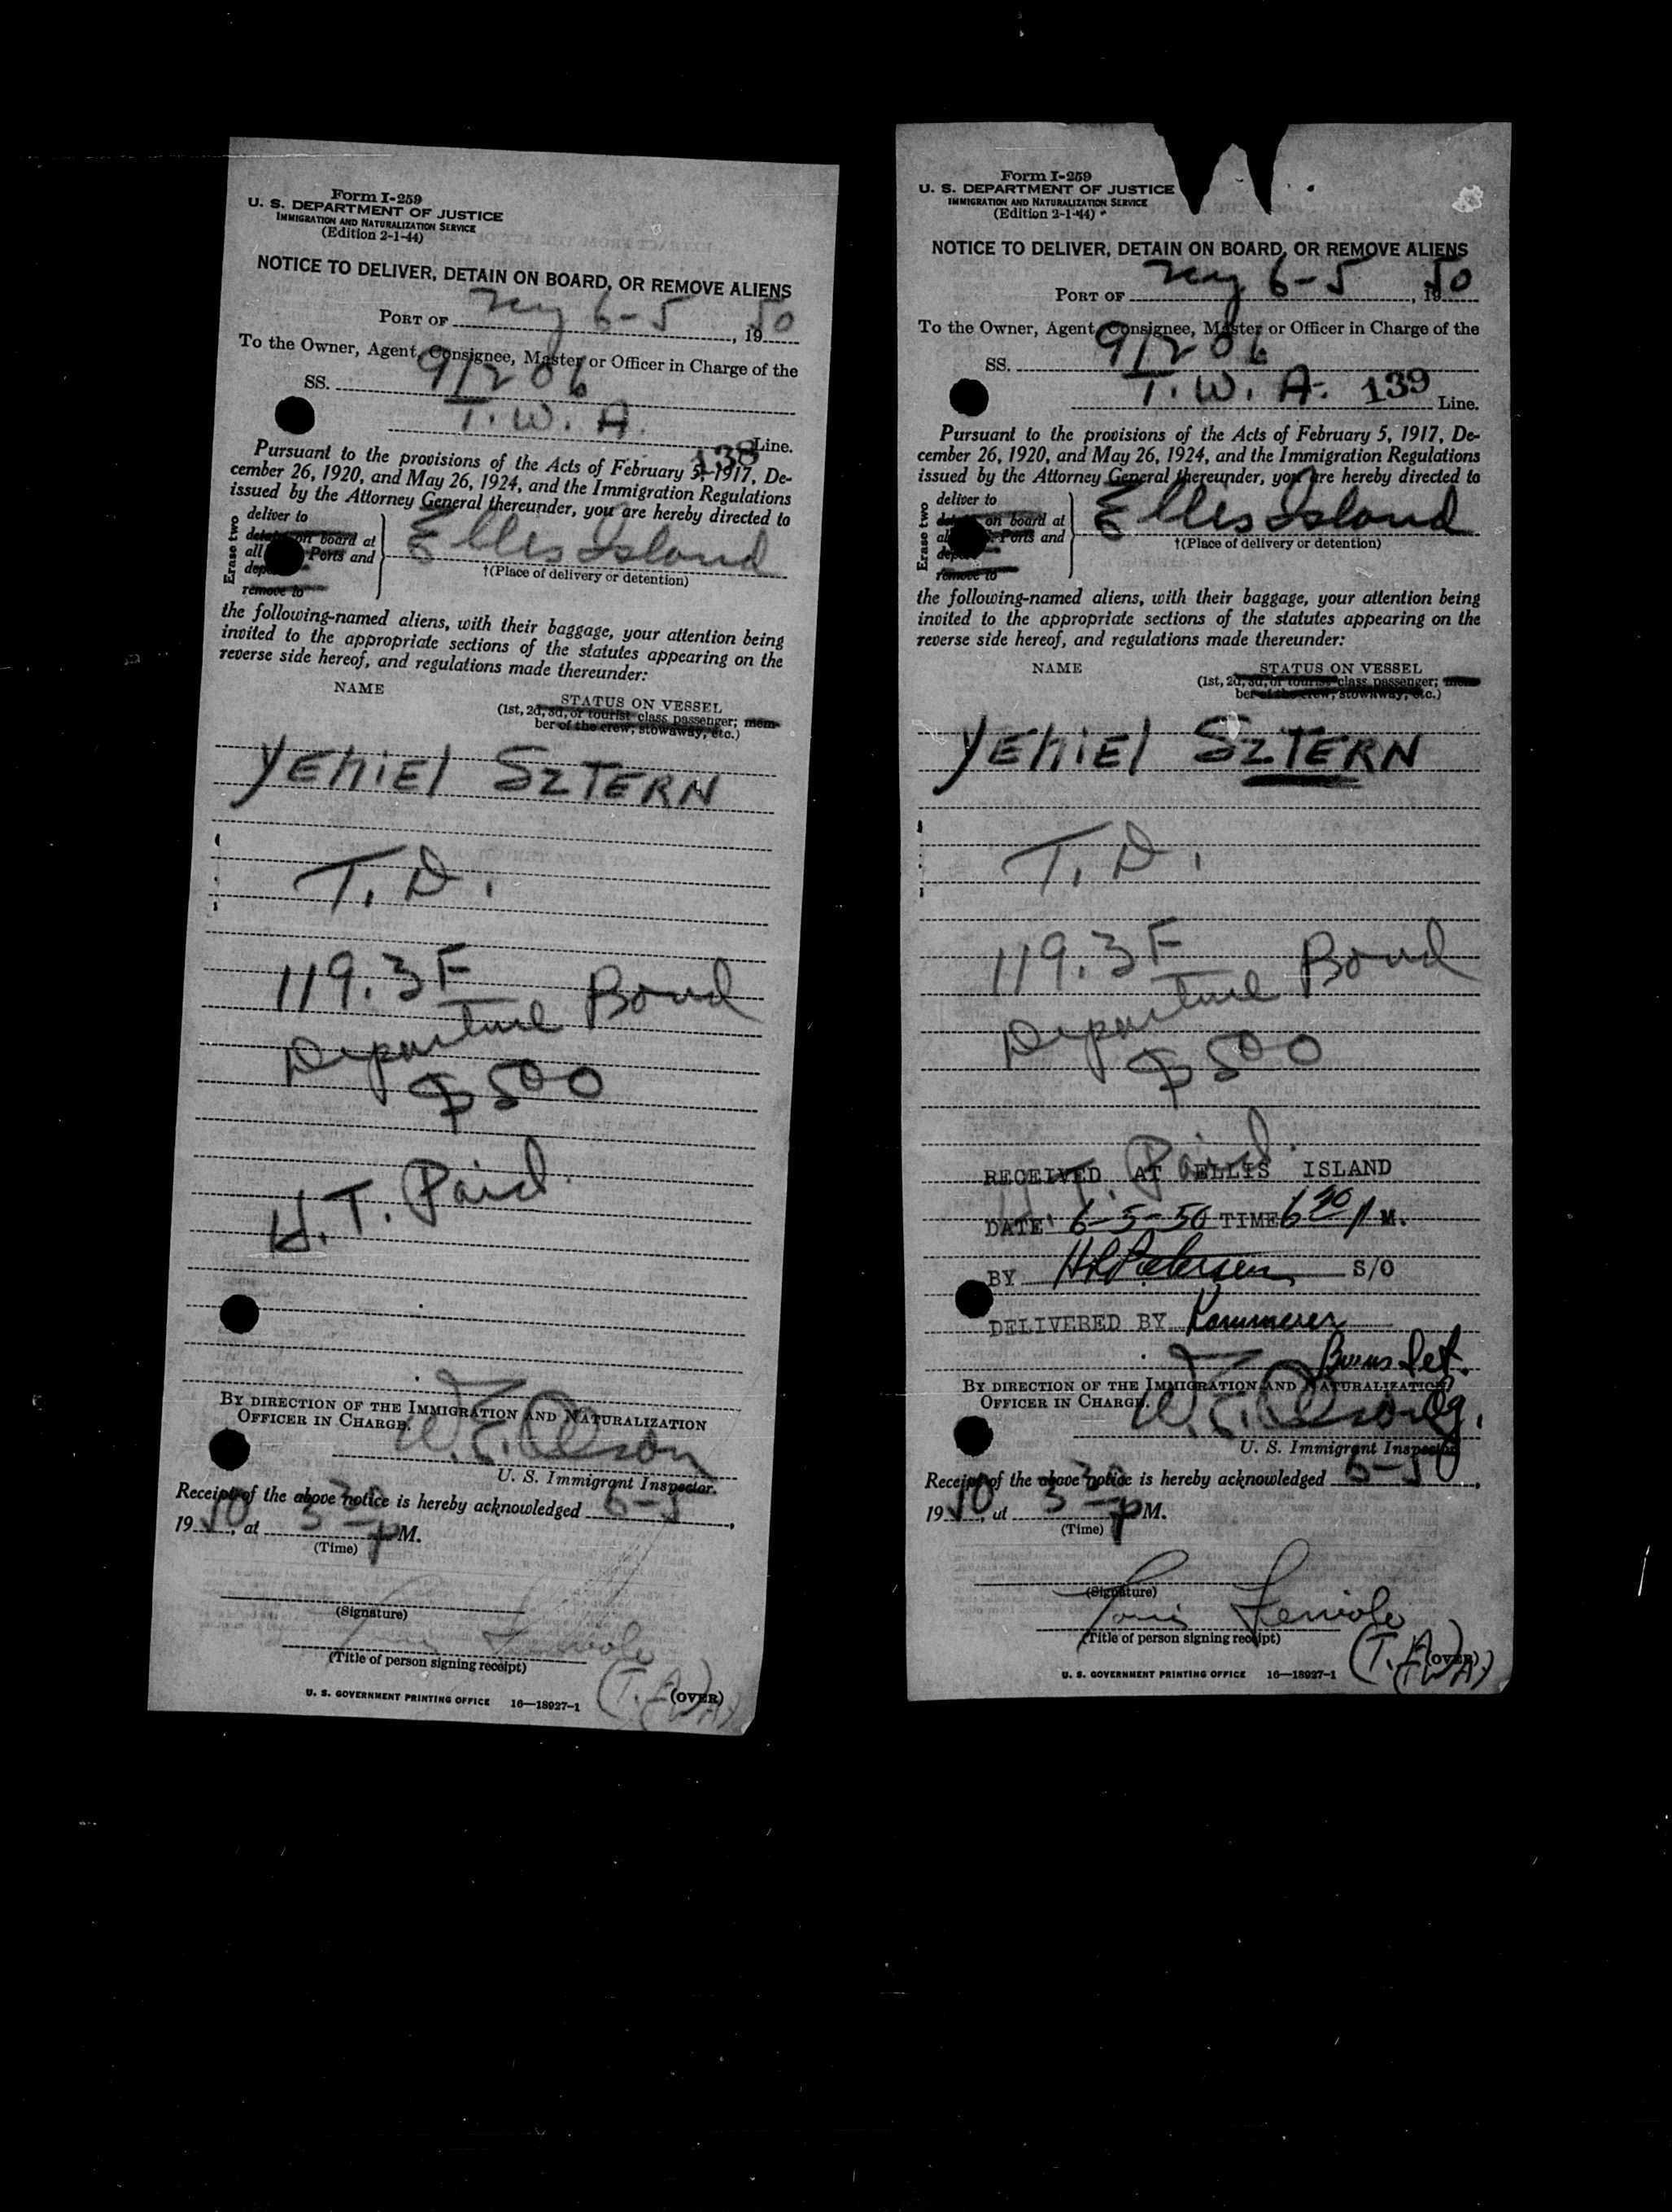 Form I-259
U. S. DEPARTMENT OF JUSTICE
IMMIGRATION AND NATURALIZATION SERVICE
(Edition 2-1-44)
NOTICE TO DELIVER, DETAIN ON BOARD, OR REMOVE ALIENS
PORT OF NY 6-5, 1950
To the Owner, Agent, Consignee, Master or Officer in Charge of the
SS. 91206
T. W. A. Line.
138
Pursuant to the provisions of the Acts of February 5, 1917, De-
cember 26, 1920, and May 26, 1924, and the Immigration Regulations
issued by the Attorney General thereunder, you are hereby directed to
Erase two
deliver to
on board at
all Ports and
remove to
Ellis Island
†(Place of delivery or detention)
the following-named aliens, with their baggage, your attention being
invited to the appropriate sections of the statutes appearing on the
reverse side hereof, and regulations made thereunder:
NAME
STATUS ON VESSEL
(1st, 2d, 3d, or tourist class passenger; mem-
ber of the crew, stowaway, etc.)
YEHIEL SZTERN
T. D.
119.3F
Departure Bond
$500
H. T. Paid.
BY DIRECTION OF THE IMMIGRATION AND NATURALIZATION
OFFICER IN CHARGE.
W. E. Olson
U. S. Immigrant Inspector.
Receipt of the above notice is hereby acknowledged 6-5,
1950, at 3 30 P M.
(Time)
(Signature)
(Title of person signing receipt)
U. S. GOVERNMENT PRINTING OFFICE 16—18927-1
(OVER)
Form I-259
U. S. DEPARTMENT OF JUSTICE
IMMIGRATION AND NATURALIZATION SERVICE
(Edition 2-1-44)
NOTICE TO DELIVER, DETAIN ON BOARD, OR REMOVE ALIENS
PORT OF NY 6-5, 1950
To the Owner, Agent, Consignee, Master or Officer in Charge of the
SS. 91206
T. W. A. 139 Line.
Pursuant to the provisions of the Acts of February 5, 1917, De-
cember 26, 1920, and May 26, 1924, and the Immigration Regulations
issued by the Attorney General thereunder, you are hereby directed to
Erase two
deliver to
on board at
Ports and
remove to
Ellis Island
†(Place of delivery or detention)
the following-named aliens, with their baggage, your attention being
invited to the appropriate sections of the statutes appearing on the
reverse side hereof, and regulations made thereunder:
NAME
STATUS ON VESSEL
(1st, 2d, 3d, or tourist class passenger; mem-
ber of the crew, stowaway, etc.)
YEHIEL SZTERN
T. D.
119.3F
Departure Bond
$500
H. T. Paid.
RECEIVED AT ELLIS ISLAND
DATE 6-5-50 TIME 6 P M.
BY H Petersen S/O
DELIVERED BY Kammerer
Burns Det.
BY DIRECTION OF THE IMMIGRATION AND NATURALIZATION
OFFICER IN CHARGE.
W. E. Olson
U. S. Immigrant Inspector
Receipt of the above notice is hereby acknowledged 6-5,
1950, at 3 30 P M.
(Time)
(Signature)
(Title of person signing receipt)
U. S. GOVERNMENT PRINTING OFFICE 16—18927-1
(OVER)